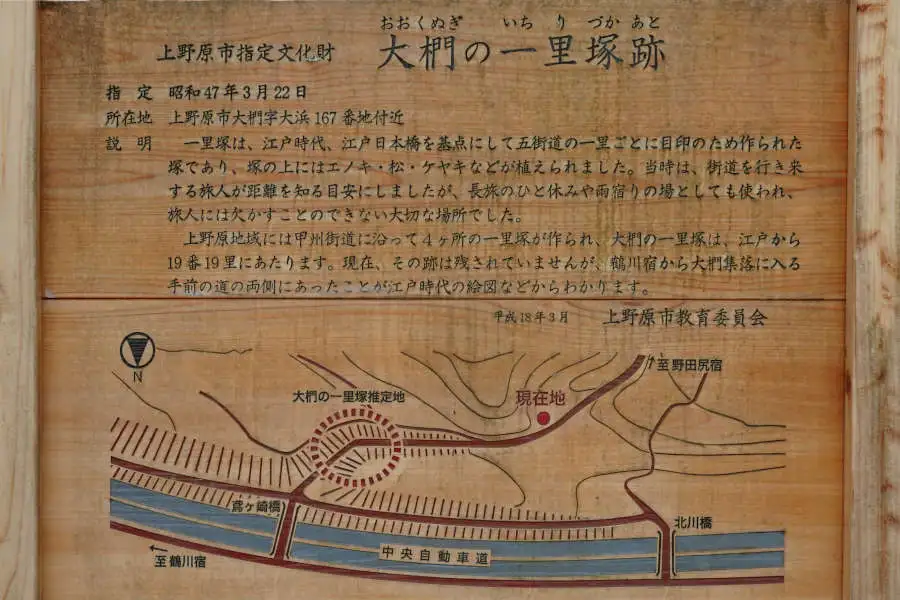 おおくぬぎ いちりづかあと
上野原市指定文化財 大椚の一里塚跡
指定 昭和47年3月22日
所在地 上野原市大椚字大浜167番地付近
説明 一里塚は、江戸時代、江戸日本橋を基点にして五街道の一里ごとに目印のため作られた
塚であり、塚の上にはエノキ・松・ケヤキなどが植えられました。当時は、街道を行き来
する旅人が距離を知る目安にしましたが、長旅のひと休みや雨宿りの場としても使われ、
旅人には欠かすことのできない大切な場所でした。
上野原地域には甲州街道に沿って4ヶ所の一里塚が作られ、大椚の一里塚は、江戸から
19番19里にあたります。現在、その跡は残されていませんが、鶴川宿から大椚集落に入る
手前の道の両側にあったことが江戸時代の絵図などからわかります。
平成18年3月 上野原市教育委員会
N
至野田尻宿
大椚の一里塚推定地
現在地
鳶ヶ崎橋
北川橋
中央自動車道
至鶴川宿